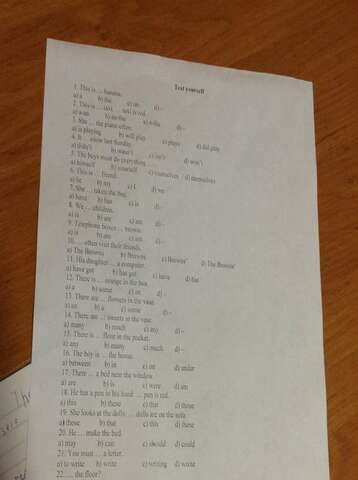 Test yourself
1. This is ... banana.
a) a b) the c) an d) –
2. This is ... taxi. ... taxi is red.
3. She ... the piano often.
a) is playing b) will play c) plays d) did play
4. It ... snow last Sunday.
a) didn't b) wasn't c) isn't d) won't
5. The boys must do everything ...
a) himself b) yourself c) yourselves d) themselves
6. This is ... friend.
a) he b) my c) I d) we
7. She ... taken the bag.
a) have b) has c) is d) –
8. We ... children.
a) is b) are c) am d) –
9. Telephone boxes ... brown.
a) is b) are c) am d) –
10. ... often visit their friends.
a) The Browns b) Browns c) Browns' d) The Browns'
11. His daughter ... a computer.
a) have got b) has got c) have d) has
12. There is ... orange in the box.
a) a b) some c) an d) –
13. There are ... flowers in the vase.
a) an b) a c) some d) –
14. There are ... sweets in the vase.
a) many b) much c) any d) –
15. There is ... flour in the packet.
a) any b) many c) much d) –
16. The boy is ... the house.
a) between b) in c) on d) under
17. There ... a bed near the window.
a) are b) is c) were d) am
18. He has a pen in his hand. ... pen is red.
a) this b) these c) that d) those
19. She looks at the dolls. ... dolls are on the sofa.
a) those b) that c) this d) these
20. He ... make the bed.
a) may b) can c) should d) could
21. You must ... a letter.
a) to write b) write c) writing d) wrote
22. ... the floor?